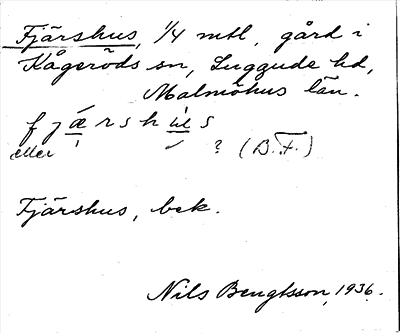 Fjärshus, 1/4 mtl, gård i
Kågeröds sn, Luggude hd,
Malmöhus län.
f j æ r s h u s
eller ? (B.F.)
Fjärshus, bek.
Nils Bengtsson, 1936.